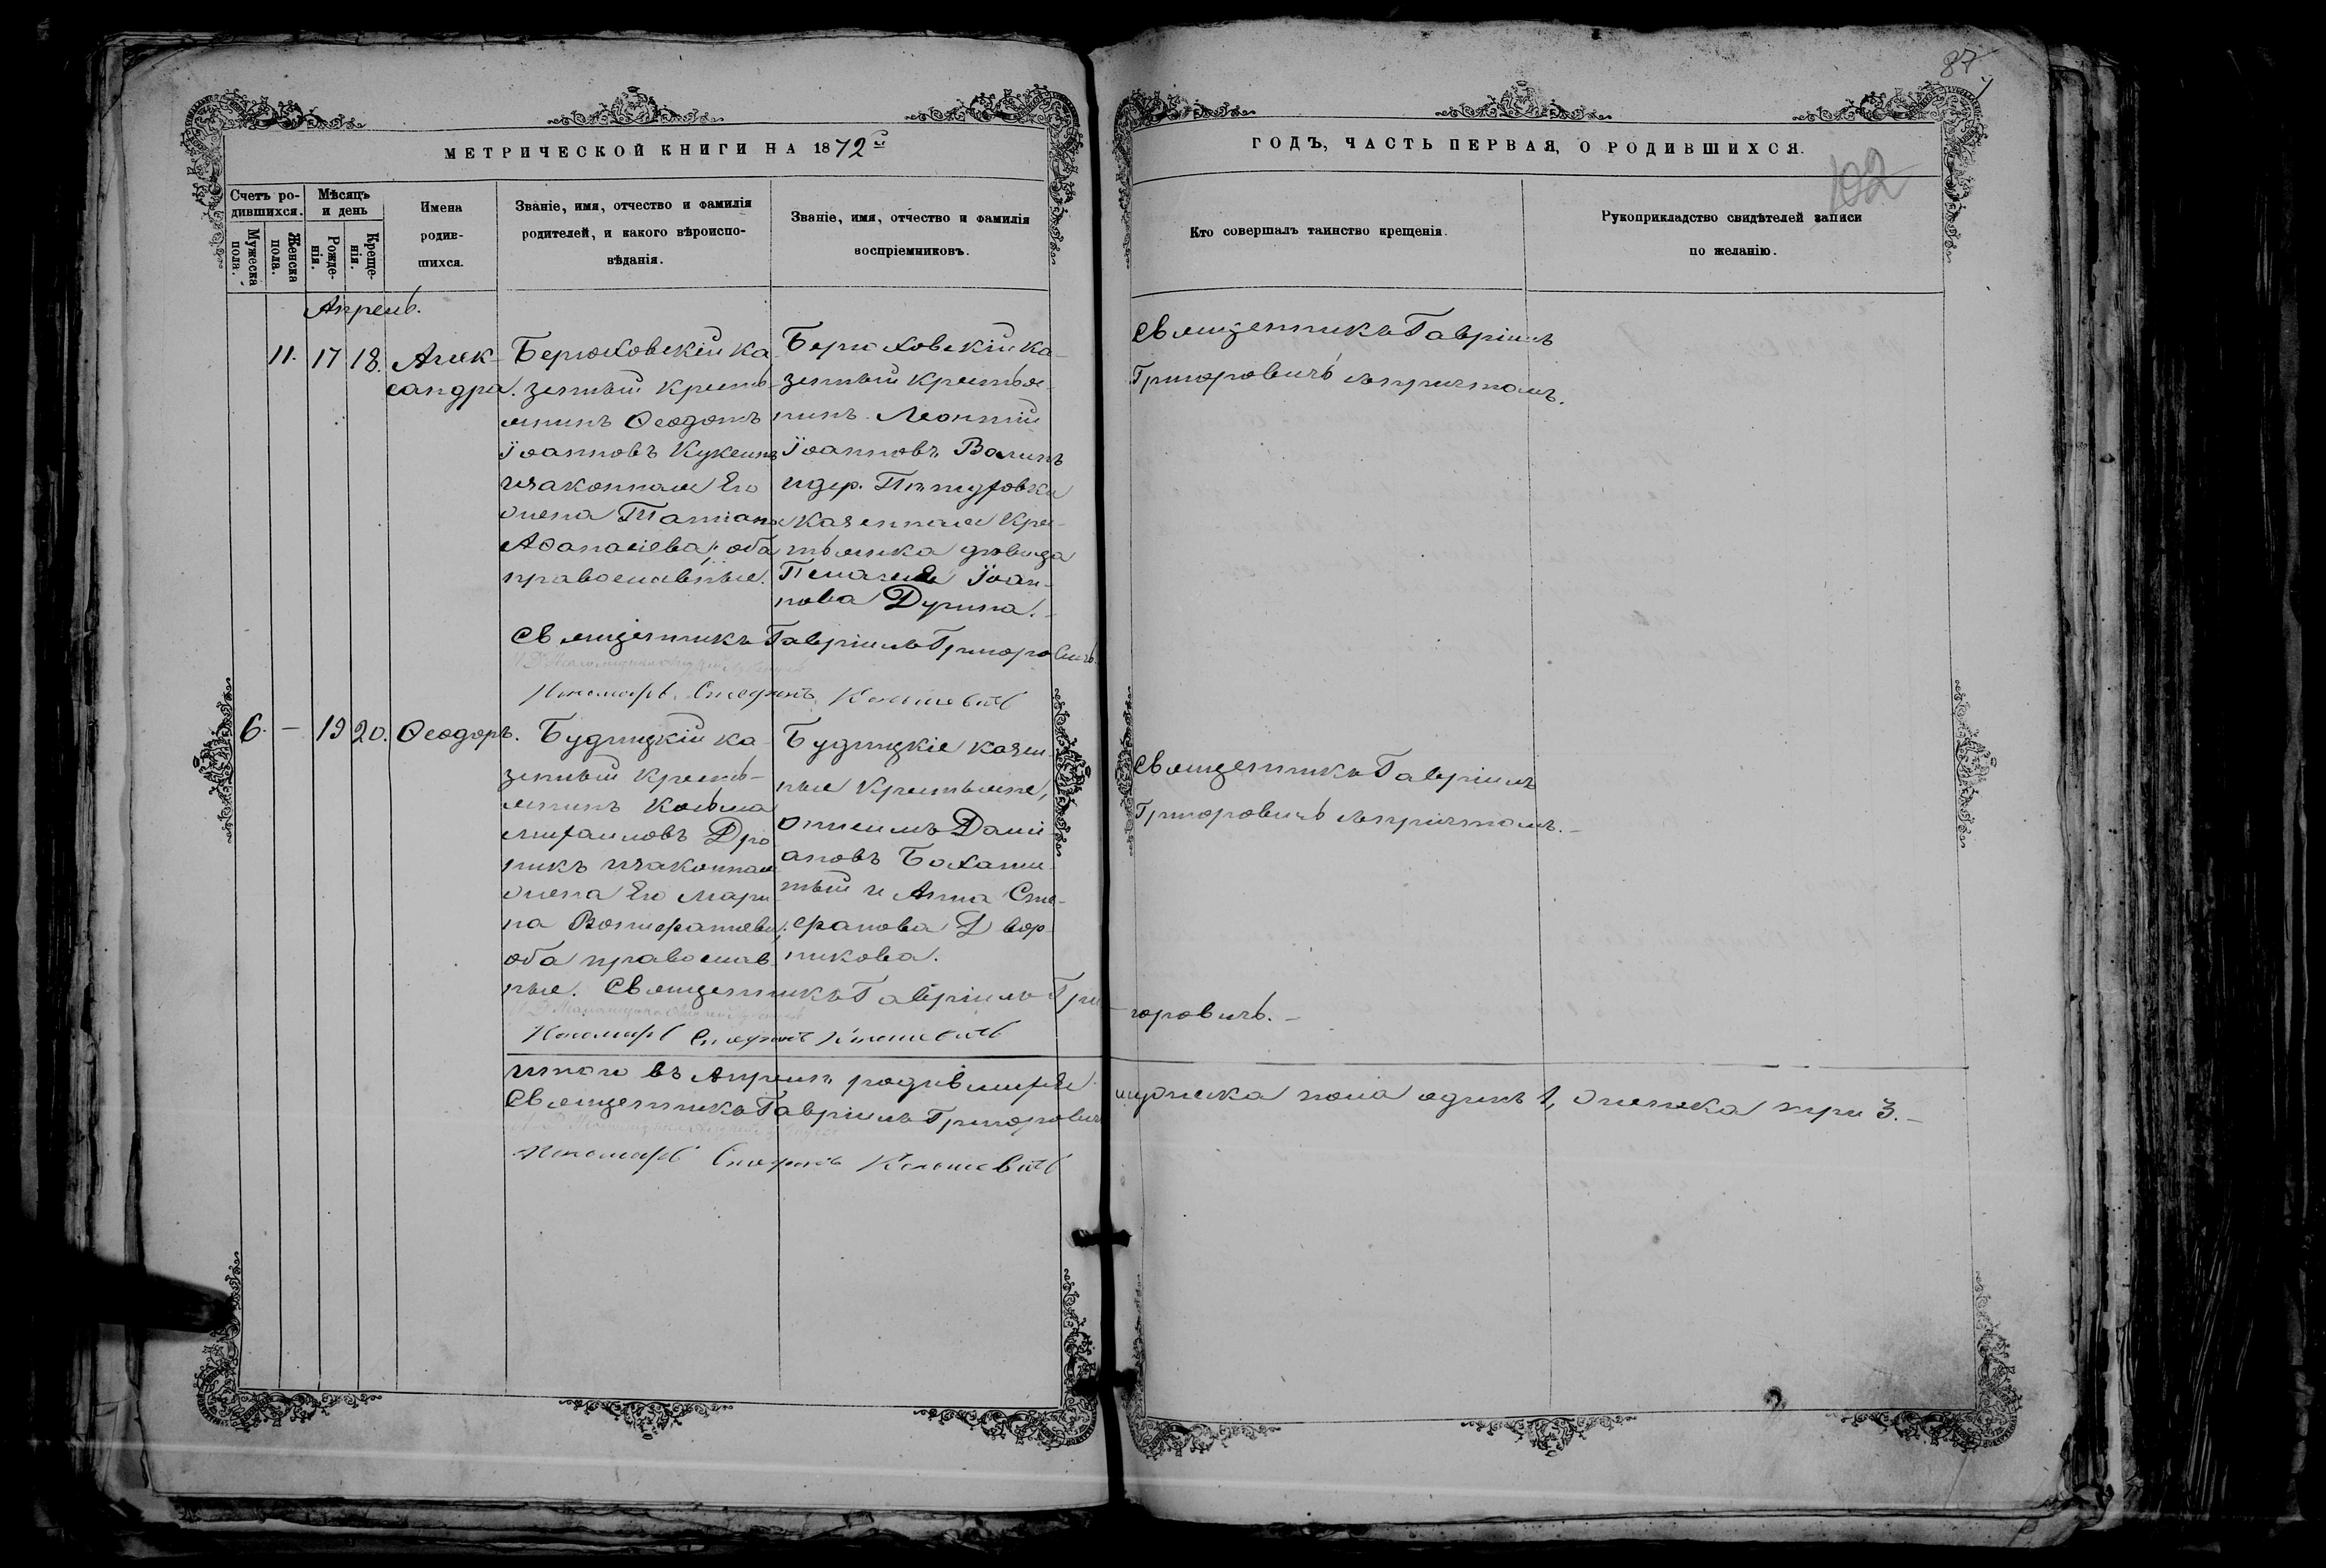 87
МЕТРИЧЕСКОЙ КНИГИ НА 1872й
ГОДЪ, ЧАСТЬ ПЕРВАЯ, О РОДИВШИХСЯ.
102
Счетъ ро-
дившихся.
Мужеска
пола.
Женска
пола.
Мѣсяцъ
и день
Рожде-
нія.
Креще-
нія.
Имена
родив-
шихся.
Званіе, имя, отчество и фамилія
родителей, и какого вѣроиспо-
вѣданія.
Званіе, имя, отчество и фамилія
воспріемниковъ.
Кто совершалъ таинство крещенія.
Рукоприкладство свидѣтелей записи
по желанію.
Апрель.
11. 17 18. Алек-
сандра.
Берюховскій ка
зенный кресть-
янинъ Ѳеодотъ
Іоанновъ
изаконная Его
жена Татіана
Аѳанасіева; оба
православные.
Берюховскій ка-
зенный крестья-
нинъ Леонтій
Іоанновъ
идер.
казенная кре-
стьянка дѣвица
Іоан-
нова
Священникъ Гавріилъ Григоровичъ.
Пономарь Стефанъ
Священникъ Гавріилъ
Григоровичъ съпричтомъ.
6. – 19 20. Ѳеодоръ.
Будницкій ка-
зенный кресть-
янинъ Козьма
Михаиловъ Дро
никъ изаконная
жена Его Мари
на Вонифатіева;
оба православ
ные. Священникъ Гавріилъ Гри
горовичъ. –
Будницкіе казен-
ные крестьяне,
Онисимъ Дамі
ановъ
и Анна Сте-
фанова Двор-
никова.
Пономарь Стефанъ
Священникъ Гавріилъ
Григоровичъ съпричтомъ. –
Итого въ Апрелѣ родившихся мужеска пола одинъ 1, женска три 3. –
Священникъ Гавріилъ Григоровичъ
Пономарь Стефанъ